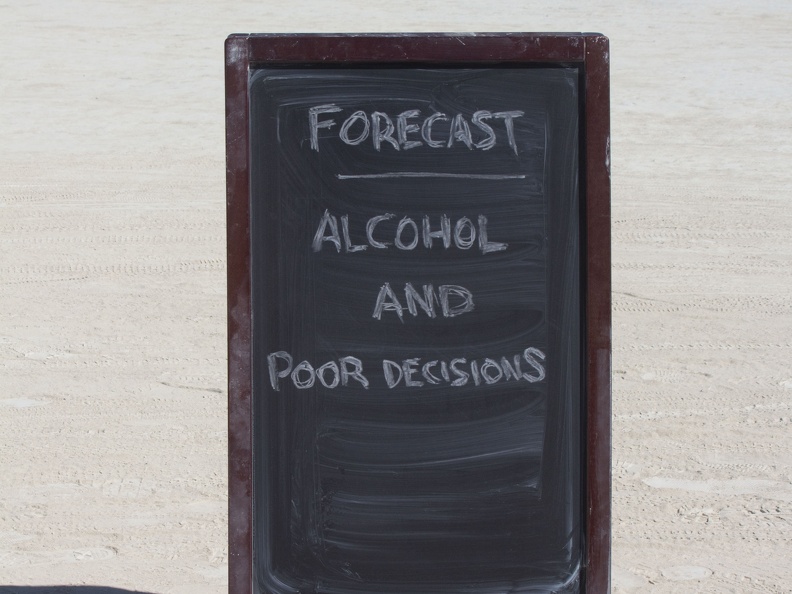 FORECAST
ALCOHOL
AND
POOR DECISIONS